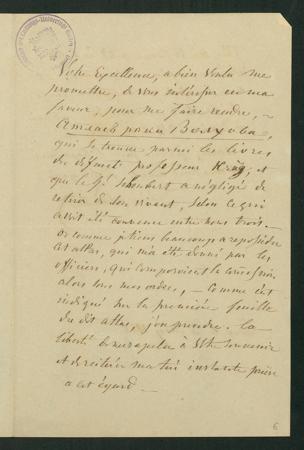 Votre Excellence, a bien voulu me
promettre, de vous intéresser en ma
faveur, pour me faire rendre, —
Атласъ рѣки Волхова,
qui se trouve parmi les livres
du défunt professeur Krug, et
que le Schubert a négligé de
retirer de son vivant, selon ce qui
avait été convenu entre nous trois. —
or comme je tiens beaucoup a reposséder
cet atlas, qui m'a été donné par les
officiers, qui composaient le
alors sous mes ordres, — comme c'est
indiqué sur la première feuille
du dit atlas, j'en prendre la
liberté de me rappeler à Votre souvenir
et de réitérer ma très instante prière
a cet égard —
6